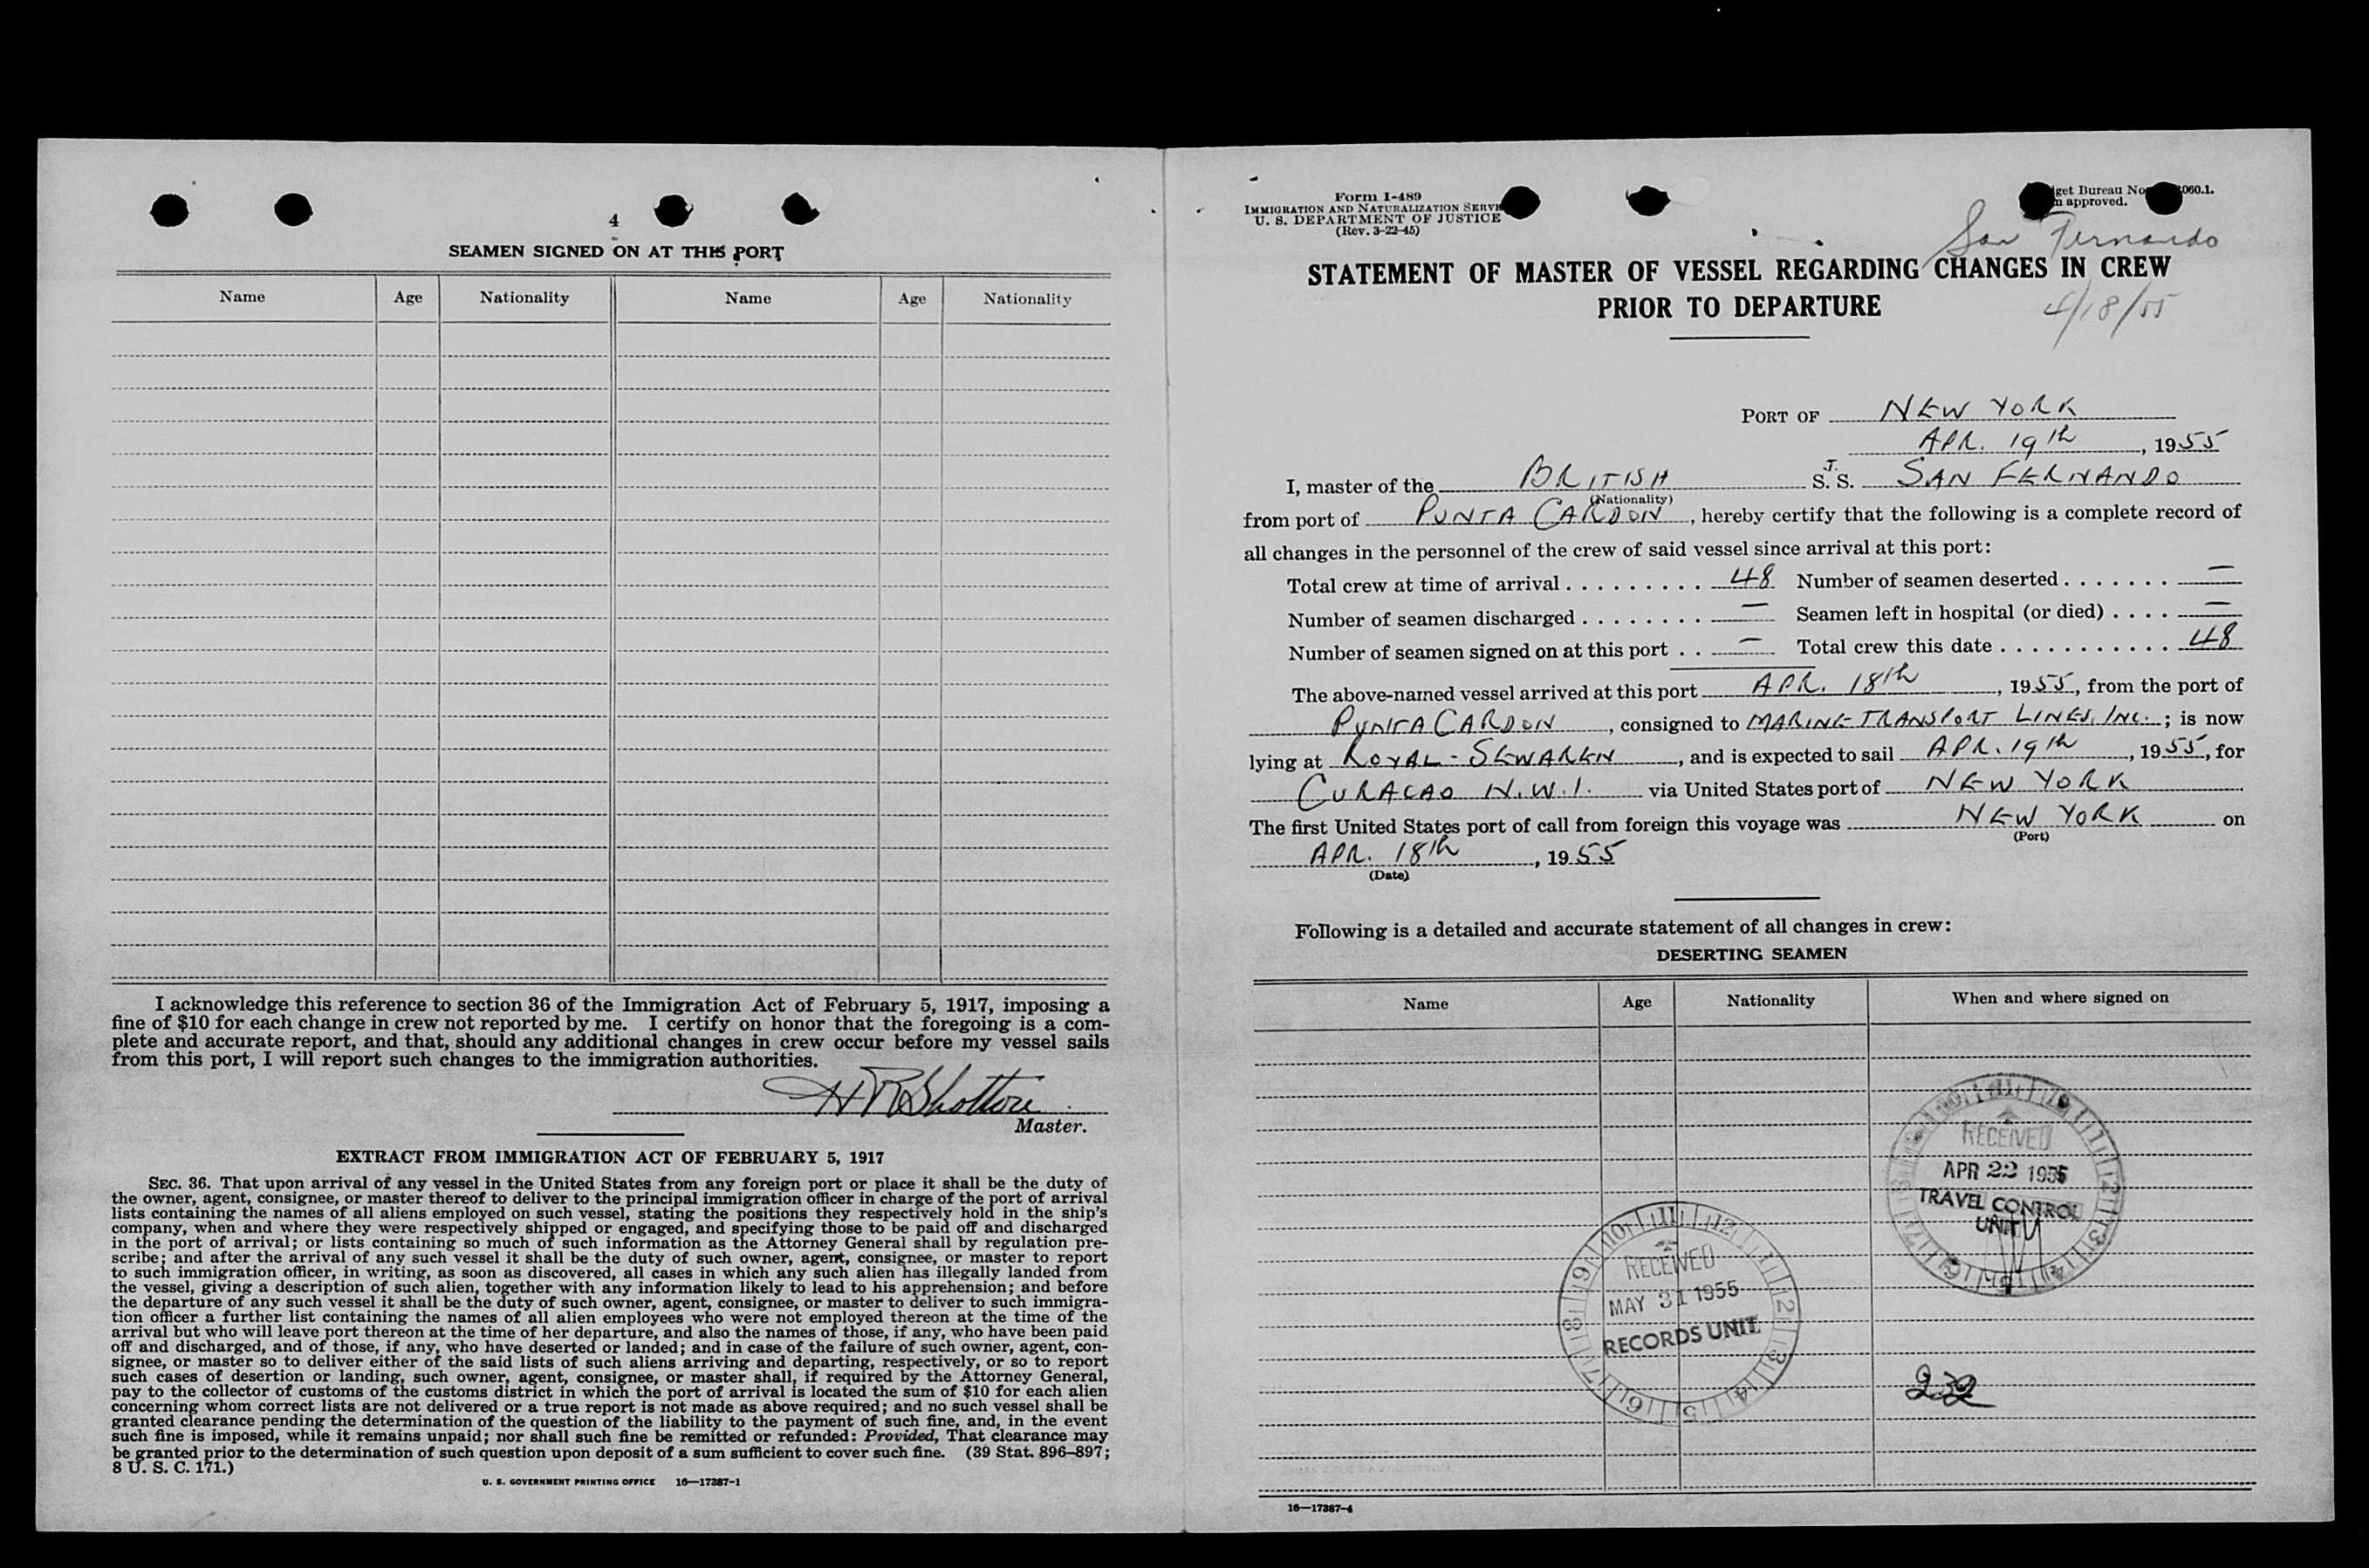 4
SEAMEN SIGNED ON AT THIS PORT
Name Age Nationality Name Age Nationality
I acknowledge this reference to section 36 of the Immigration Act of February 5, 1917, imposing a
fine of $10 for each change in crew not reported by me. I certify on honor that the foregoing is a com-
plete and accurate report, and that, should any additional changes in crew occur before my vessel sails
from this port, I will report such changes to the immigration authorities.
Master.
EXTRACT FROM IMMIGRATION ACT OF FEBRUARY 5, 1917
SEC. 36. That upon arrival of any vessel in the United States from any foreign port or place it shall be the duty of
the owner, agent, consignee, or master thereof to deliver to the principal immigration officer in charge of the port of arrival
lists containing the names of all aliens employed on such vessel, stating the positions they respectively hold in the ship's
company, when and where they were respectively shipped or engaged, and specifying those to be paid off and discharged
in the port of arrival; or lists containing so much of such information as the Attorney General shall by regulation pre-
scribe; and after the arrival of any such vessel it shall be the duty of such owner, agent, consignee, or master to report
to such immigration officer, in writing, as soon as discovered, all cases in which any such alien has illegally landed from
the vessel, giving a description of such alien, together with any information likely to lead to his apprehension; and before
the departure of any such vessel it shall be the duty of such owner, agent, consignee, or master to deliver to such immigra-
tion officer a further list containing the names of all alien employees who were not employed thereon at the time of the
arrival but who will leave port thereon at the time of her departure, and also the names of those, if any, who have been paid
off and discharged, and of those, if any, who have deserted or landed; and in case of the failure of such owner, agent, con-
signee, or master so to deliver either of the said lists of such aliens arriving and departing, respectively, or so to report
such cases of desertion or landing, such owner, agent, consignee, or master shall, if required by the Attorney General,
pay to the collector of customs of the customs district in which the port of arrival is located the sum of $10 for each alien
concerning whom correct lists are not delivered or a true report is not made as above required; and no such vessel shall be
granted clearance pending the determination of the question of the liability to the payment of such fine, and, in the event
such fine is imposed, while it remains unpaid; nor shall such fine be remitted or refunded: Provided, That clearance may
be granted prior to the determination of such question upon deposit of a sum sufficient to cover such fine. (39 Stat. 896–897;
8 U. S. C. 171.)
U. S. GOVERNMENT PRINTING OFFICE 16—17387-1
Form I-489
IMMIGRATION AND NATURALIZATION
U. S. DEPARTMENT OF JUSTICE
(Rev. 3-22-45)
Bureau No. 060.1.
approved.
San Fernando
STATEMENT OF MASTER OF VESSEL REGARDING CHANGES IN CREW
PRIOR TO DEPARTURE
4/18/55
PORT OF NEW YORK
APR. 19th, 1955
I, master of the BRITISH S.T.S. SAN FERNANDO
(Nationality)
from port of PUNTA CARDON, hereby certify that the following is a complete record of
all changes in the personnel of the crew of said vessel since arrival at this port:
Total crew at time of arrival . . . . . . . . . 48 Number of seamen deserted . . . . . . . —
Number of seamen discharged . . . . . . . . — Seamen left in hospital (or died) . . . . —
Number of seamen signed on at this port . . — Total crew this date . . . . . . . . . . . 48
The above-named vessel arrived at this port APR. 18th, 1955, from the port of
PUNTA CARDON, consigned to MARINE TRANSPORT LINES, INC.; is now
lying at ROYAL - SEWAREN, and is expected to sail APR. 19th, 1955, for
CURACAO N.W.I. via United States port of NEW YORK.
The first United States port of call from foreign this voyage was NEW YORK on
(Port)
APR. 18th, 1955
(Date)
Following is a detailed and accurate statement of all changes in crew:
DESERTING SEAMEN
Name Age Nationality When and where signed on
RECEIVED
APR 22 1955
TRAVEL CONTROL
UNIT
RECEIVED
MAY 31 1955
RECORDS UNIT
232
16—17387-4